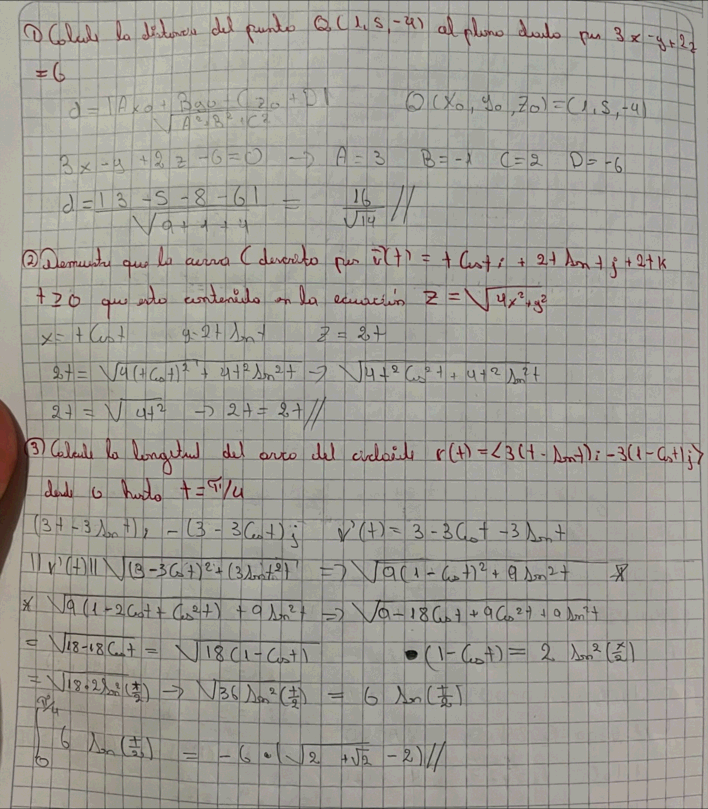 ① Calcule la distancia del punto Q(1,5,-4) al plano dado por 3x-y+2z
=6
d = |Ax0 + By0 + Cz0 + D| / √A²+B²+C² Q(x0, y0, z0) = (1,5,-4)
3x - y + 2z - 6 = 0 → A = 3 B = -1 C = 2 D = -6
d = |3 - 5 - 8 - 6| / √9+1+4 = 16/√14 //
② Demuestre que la curva C descrita por r̄(t) = t Cos t i + 2t Sen t j + 2t k
t≥0 que esta contenida en la ecuación z = √4x²+y²
x = t Cos t y = 2t Sen t z = 2t
2t = √4(t Cos t)² + 4t² Sen² t → √4t² Cos² t + 4t² Sen² t
2t = √4t² → 2t = 2t //
③ Calcule la longitud del arco del cicloide r(t) = <3(t - Sen t)i - 3(1 - Cos t)j>
desde 0 hasta t = π/4
(3t - 3 Sen t)i - (3 - 3 Cos t)j r'(t) = 3 - 3 Cos t - 3 Sen t
||r'(t)|| √(3 - 3 Cos t)² + (3 Sen t)² ⇒ √9(1 - Cos t)² + 9 Sen² t *
* √9(1 - 2 Cos t + Cos² t) + 9 Sen² t ⇒ √9 - 18 Cos t + 9 Cos² t + 9 Sen² t
= √18 - 18 Cos t = √18(1 - Cos t) • (1 - Cos t) = 2 Sen²(x/2)
= √18 • 2 Sen²(t/2) → √36 Sen²(t/2) = 6 Sen(t/2)
∫0^π/4 6 Sen(t/2) = -6 • (√2 + √2 - 2) //